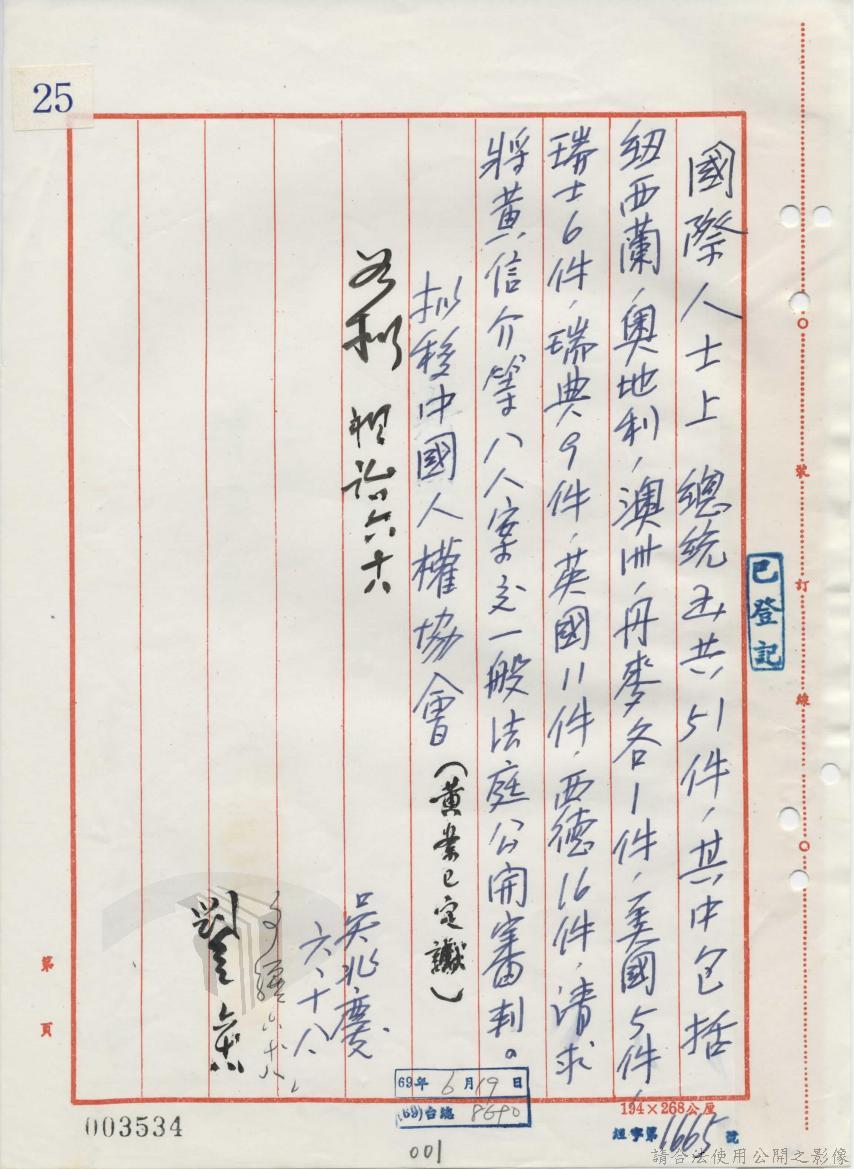 25
國際人士上 總統函共51件,其中包括
紐西蘭,奧地利,澳洲,丹麥各1件,美國5件,
瑞士6件,瑞典9件,英國11件,西德16件,請求
將黃信介等八人案交一般法庭公開審判。
擬移中國人權協會(黃案已定讞)
如擬 六 十八
吳兆慶
六、十八、
六 十八
劉 六 十八
已登記
裝
訂
線
第
頁
69年6月19日
(69)台總8690
194×268公厘
字第1665號
003534
001
請合法使用公開之影像